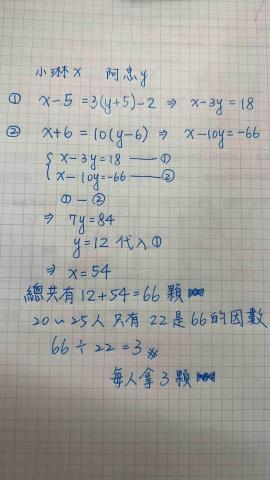 小琳x 阿忠y
① x-5=3(y+5)-2 ⇒ x-3y=18
② x+6=10(y-6) ⇒ x-10y=-66
{ x-3y=18 —— ①
x-10y=-66 —— ②
①-②
⇒ 7y=84
y=12 代入①
⇒ x=54
總共有12+54=66 顆
20~25人 只有 22是66的因數
66÷22=3
每人拿3顆